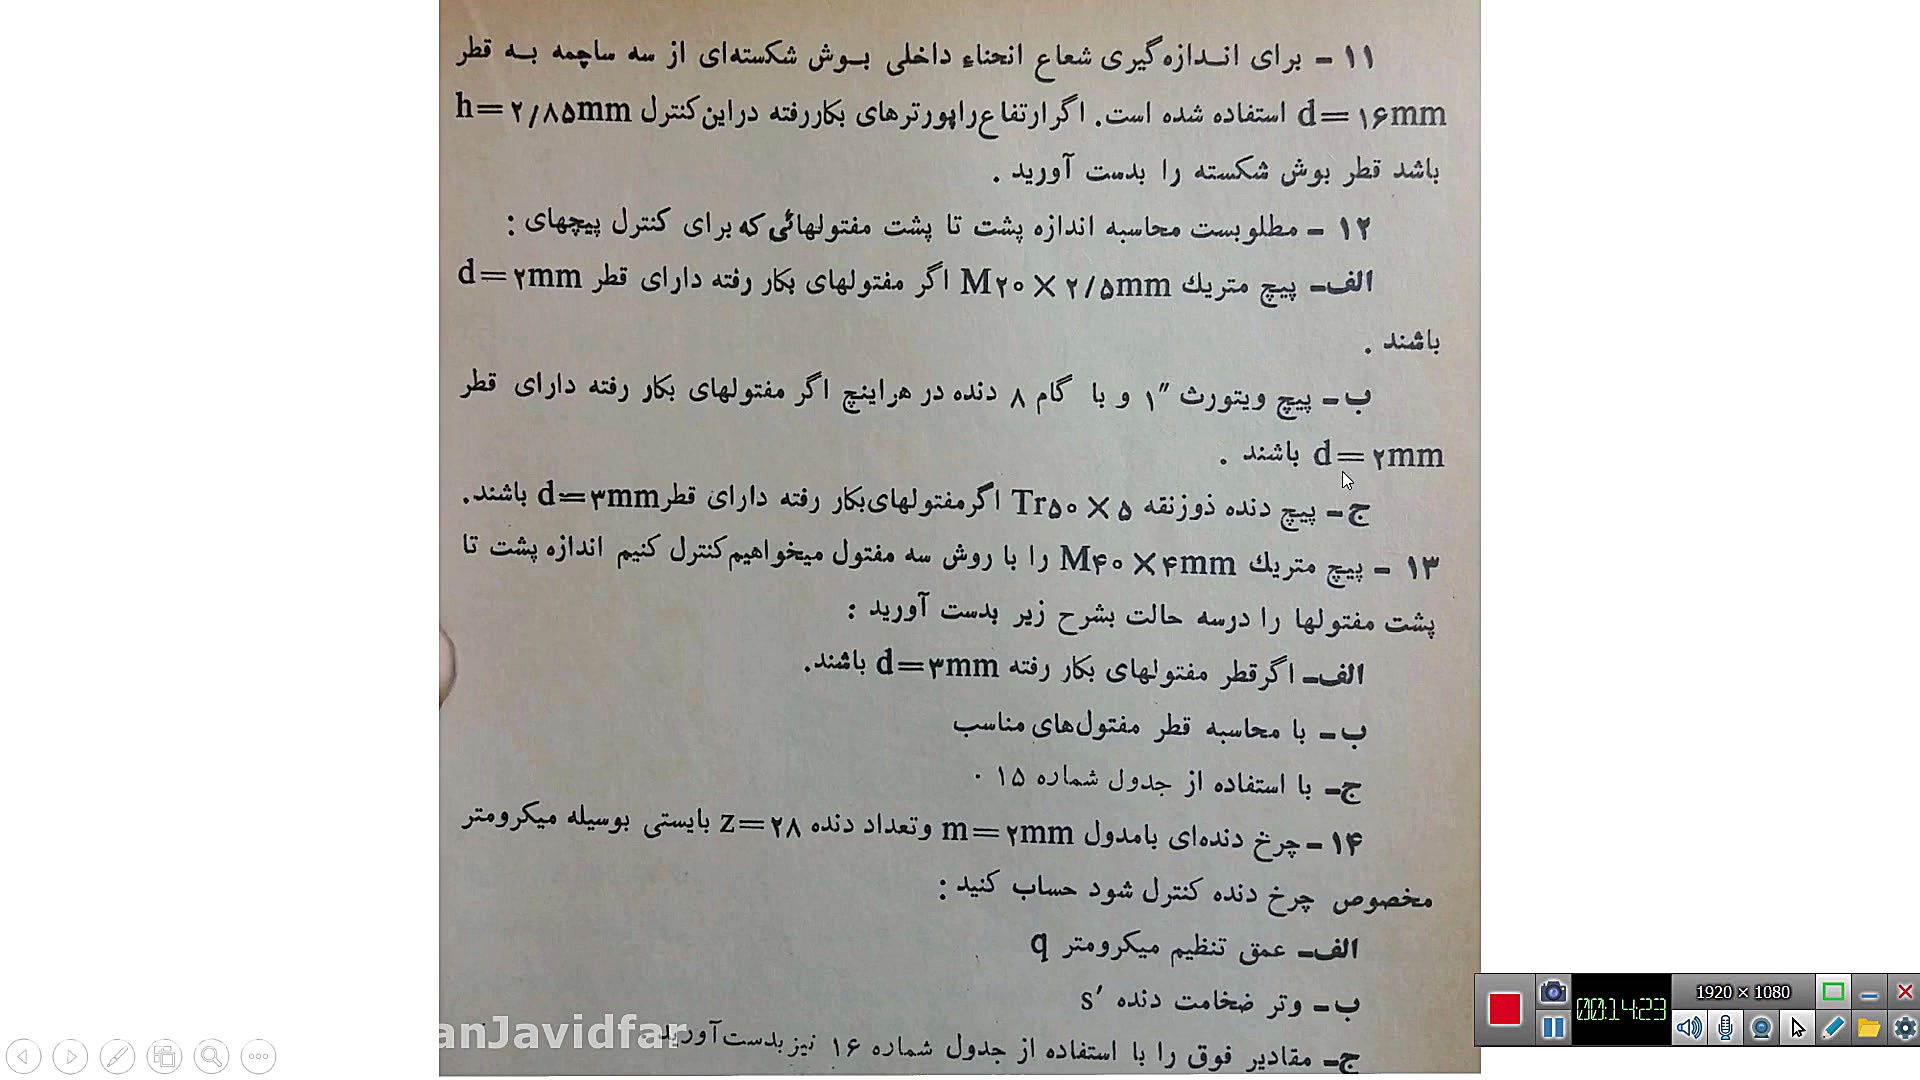 ۱۱ - برای اندازه‌گیری شعاع انحناء داخلی بوش شکسته‌ای از سه ساچمه به قطر
d=۱۶mm استفاده شده است. اگر ارتفاع راپورترهای بکاررفته دراین کنترل h=۲/۸۵mm
باشد قطر بوش شکسته را بدست آورید .
۱۲ - مطلوبست محاسبه اندازه پشت تا پشت مفتولهائی که برای کنترل پیچهای :
الف- پیچ متریك M۲۰×۲/۵mm اگر مفتولهای بکار رفته دارای قطر d=۲mm
باشند .
ب- پیچ ویتورث ″۱ و با گام ۸ دنده در هراینچ اگر مفتولهای بکار رفته دارای قطر
d=۲mm باشند .
ج- پیچ دنده ذوزنقه Tr۵۰×۵ اگرمفتولهای‌بکار رفته دارای قطر d=۳mm باشند.
۱۳ - پیچ متریك M۴۰×۴mm را با روش سه مفتول میخواهیم کنترل کنیم اندازه پشت تا
پشت مفتولها را درسه حالت بشرح زیر بدست آورید :
الف- اگرقطر مفتولهای بکار رفته d=۳mm باشند.
ب- با محاسبه قطر مفتول‌های مناسب
ج- با استفاده از جدول شماره ۱۵ .
۱۴ - چرخ دنده‌ای بامدول m=۲mm وتعداد دنده z=۲۸ بایستی بوسیله میکرومتر
مخصوص چرخ دنده کنترل شود حساب کنید :
الف- عمق تنظیم میکرومتر q
ب- وتر ضخامت دنده s′
ج- مقادیر فوق را با استفاده از جدول شماره ۱۶ نیز بدست‌آورید
anJavidfar
1920 × 1080
00:14:23